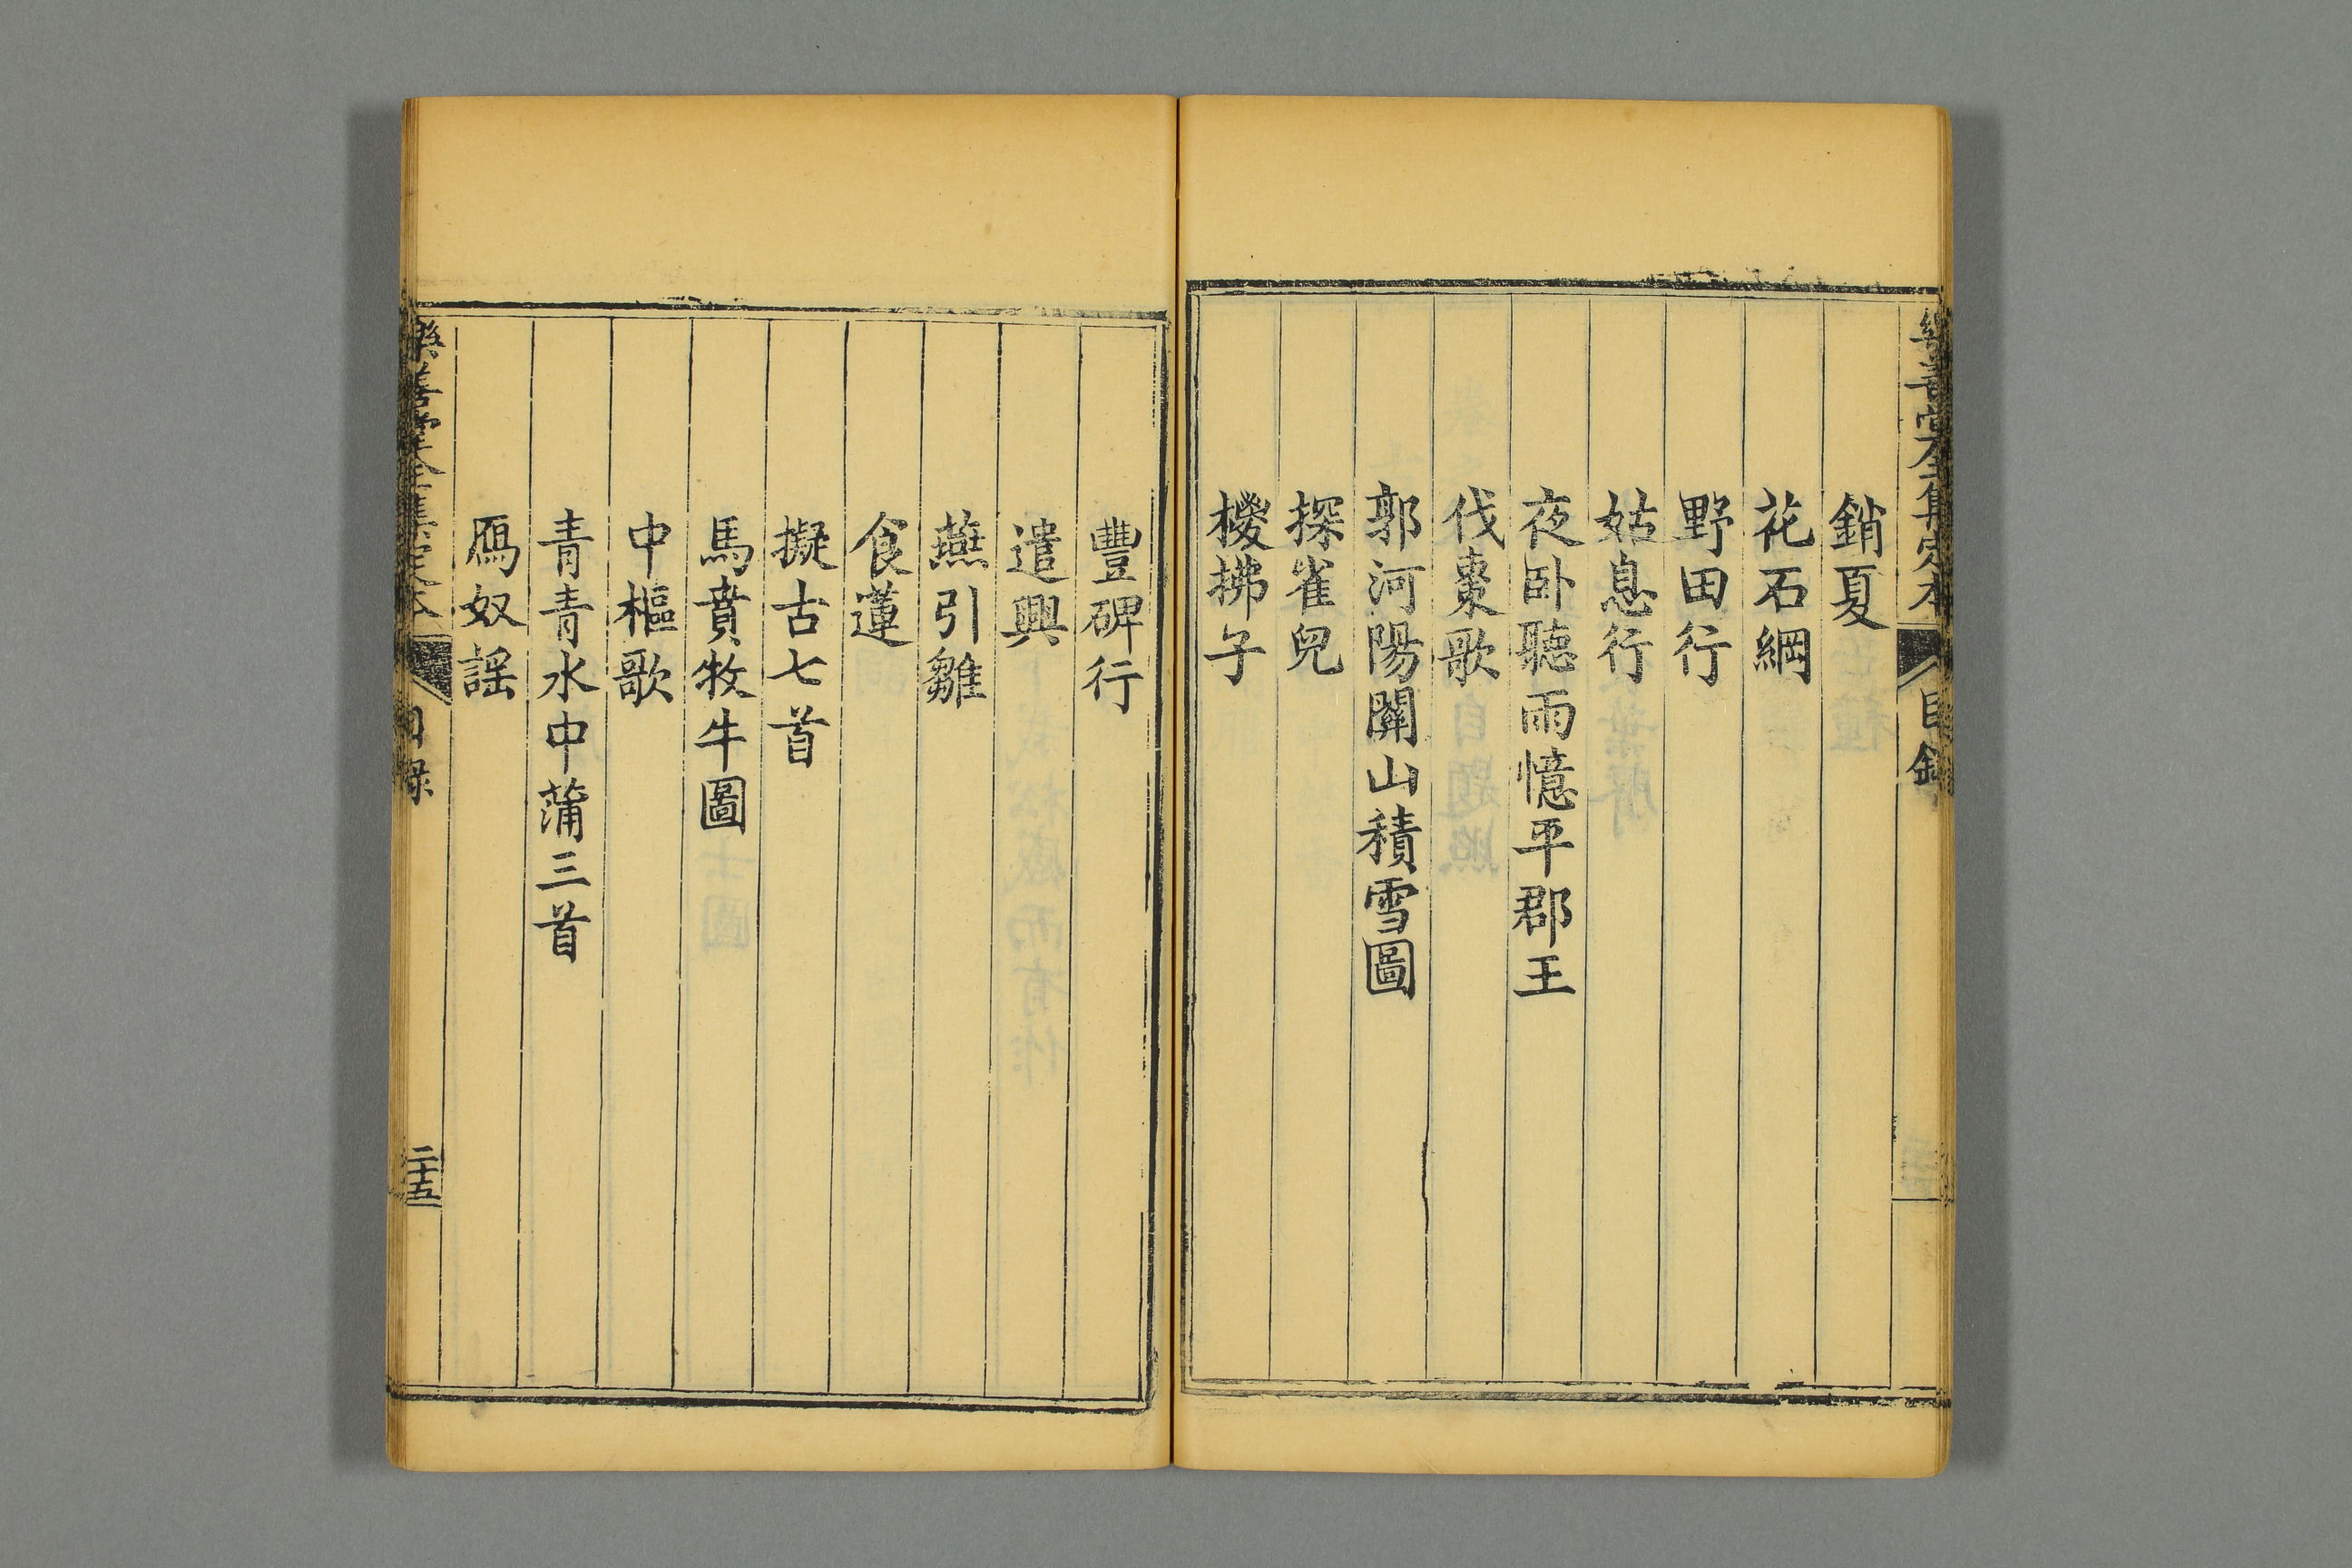 樂善堂全集定本
目錄
銷夏
花石綱
野田行
姑息行
夜卧聽雨憶平郡王
伐棗歌
郭河陽關山積雪圖
探雀兒
椶拂子
豐碑行
遣興
燕引雛
食蓮
擬古七首
馬賁牧牛圖
中樞歌
青青水中蒲三首
鴈奴謡
樂善堂全集定本
目錄
二十五